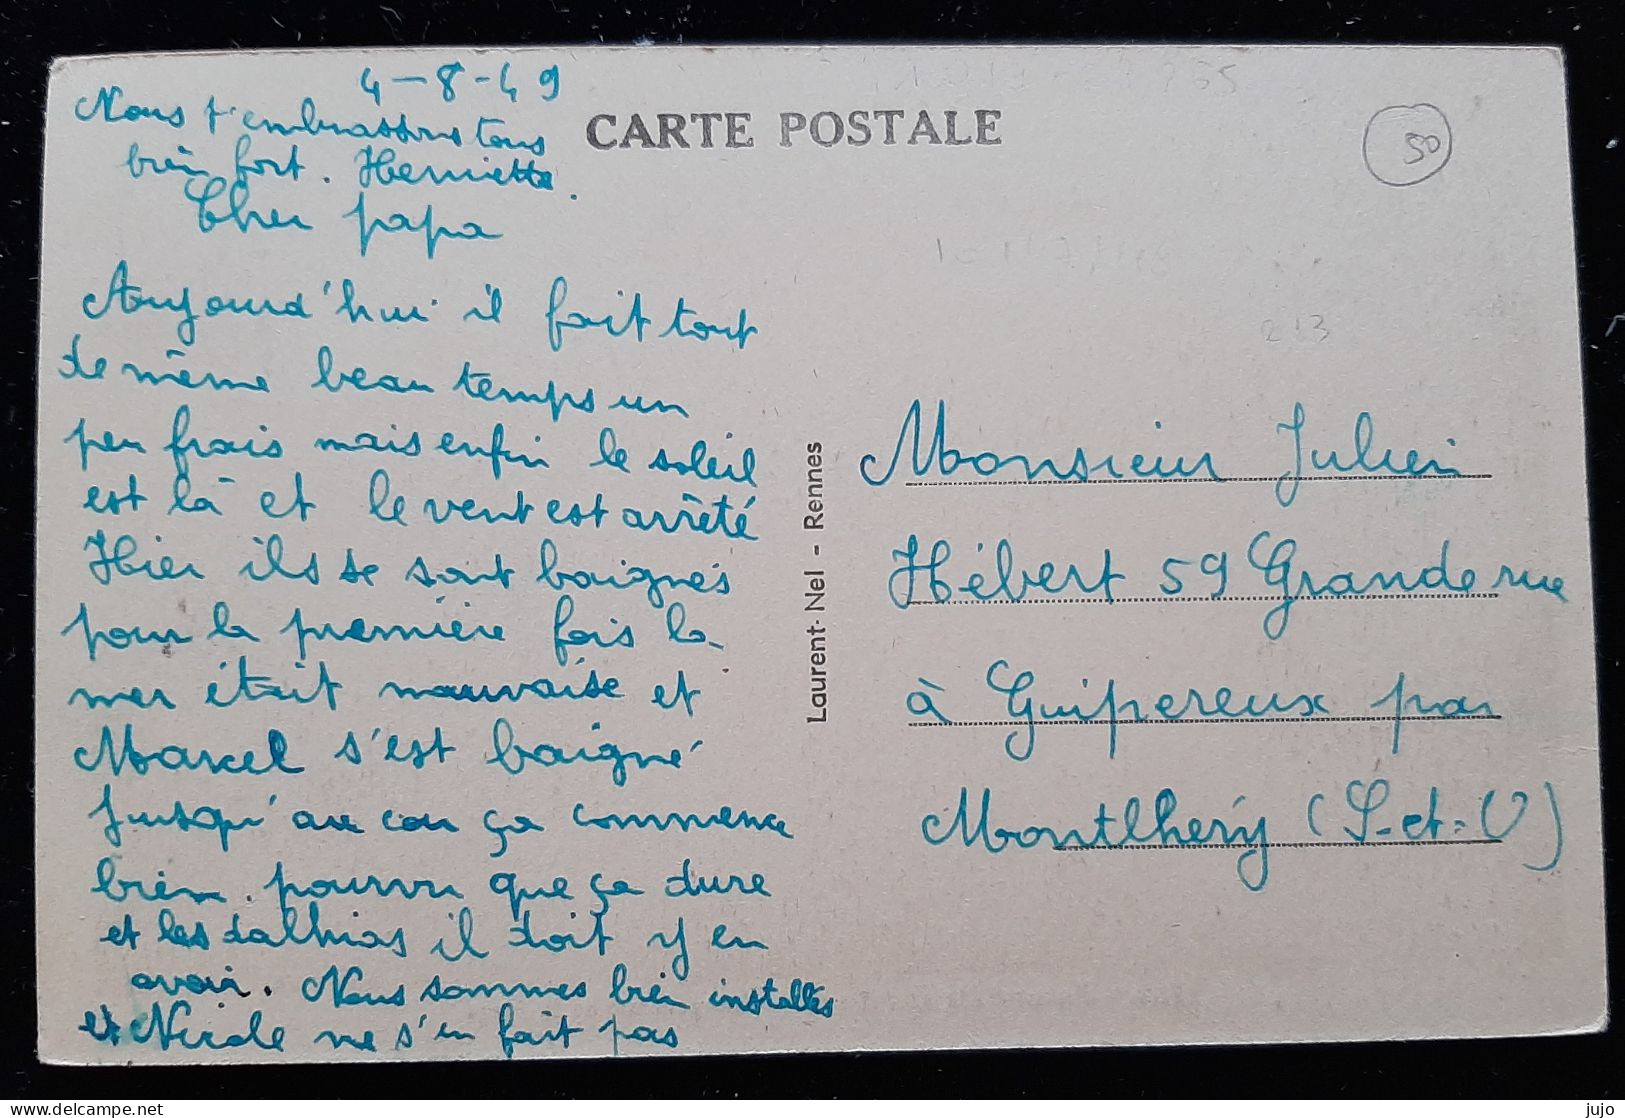 4-8-49
Nous t'embrassons tous
bien fort. Henriette.
Cher papa
Aujourd'hui il fait tout
de même beau temps un
peu frais mais enfin le soleil
est là et le vent est arrêté
Hier ils se sont baignés
pour la première fois la
mer était mauvaise et
Marcel s'est baigné
jusqu'au cou ça commence
bien. pourvu que ça dure
et les dalhias il doit y en
avoir. Nous sommes bien installés
et Nicole ne s'en fait pas
CARTE POSTALE
50
213
Laurent-Nel - Rennes
Monsieur Julien
Hébert 59 Grande rue
à Guipereux par
Montlhéry (S.-et-O)
jujo